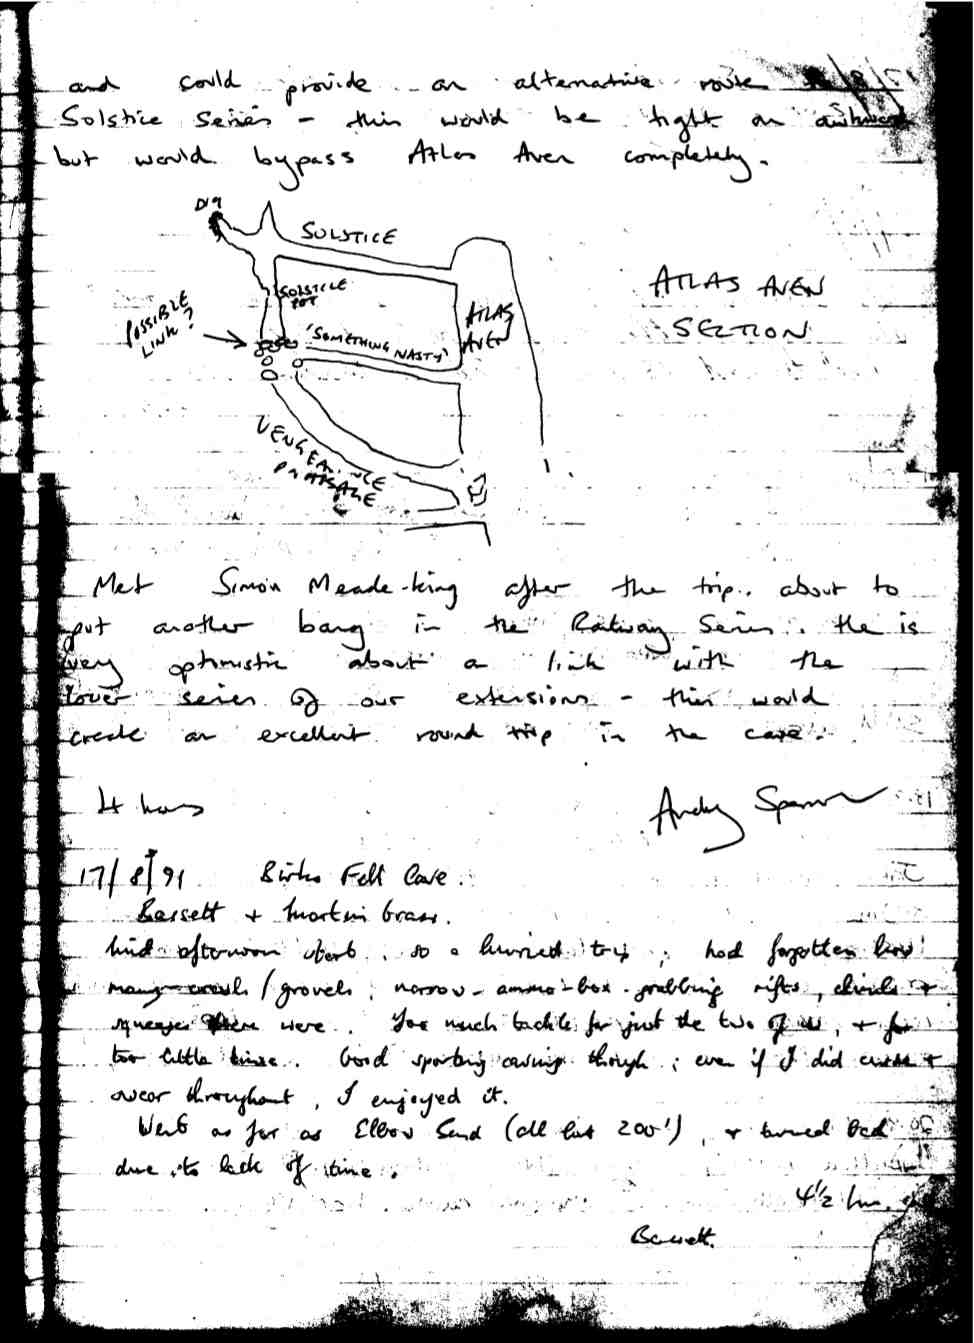 and could provide an alternative route
Solstice Series - this would be tight an awkward
but would bypass Atlas Aven completely.
DIG
SOLSTICE
SOLSTICE
POT
POSSIBLE
LINK?
'SOMETHING NASTY'
ATLAS
AVEN
ATLAS AVEN
SECTION
VENGEANCE
PASSAGE
Met Simon Meade-King after the trip. about to
put another bang in the Railway Series. He is
very optimistic about a link with the
lower series of our extensions - this would
create an excellent round trip in the cave.
4 hours
Andy Sp
17/8/91 Birks Fell Cave.
Bassett + Martin Grass.
Mid afternoon start, so a hurried trip; had forgotten how
many crawls/grovels, narrow-ammo-box-grabbing rifts, climbs +
squeezes there were. Too much tackle for just the two of us, + far
too little time. Good sporting caving though; even if I did curse +
swear throughout, I enjoyed it.
Went as far as Elbow Bend (all but 200'), + turned back
due to lack of time.
4½ hrs.
Bassett.